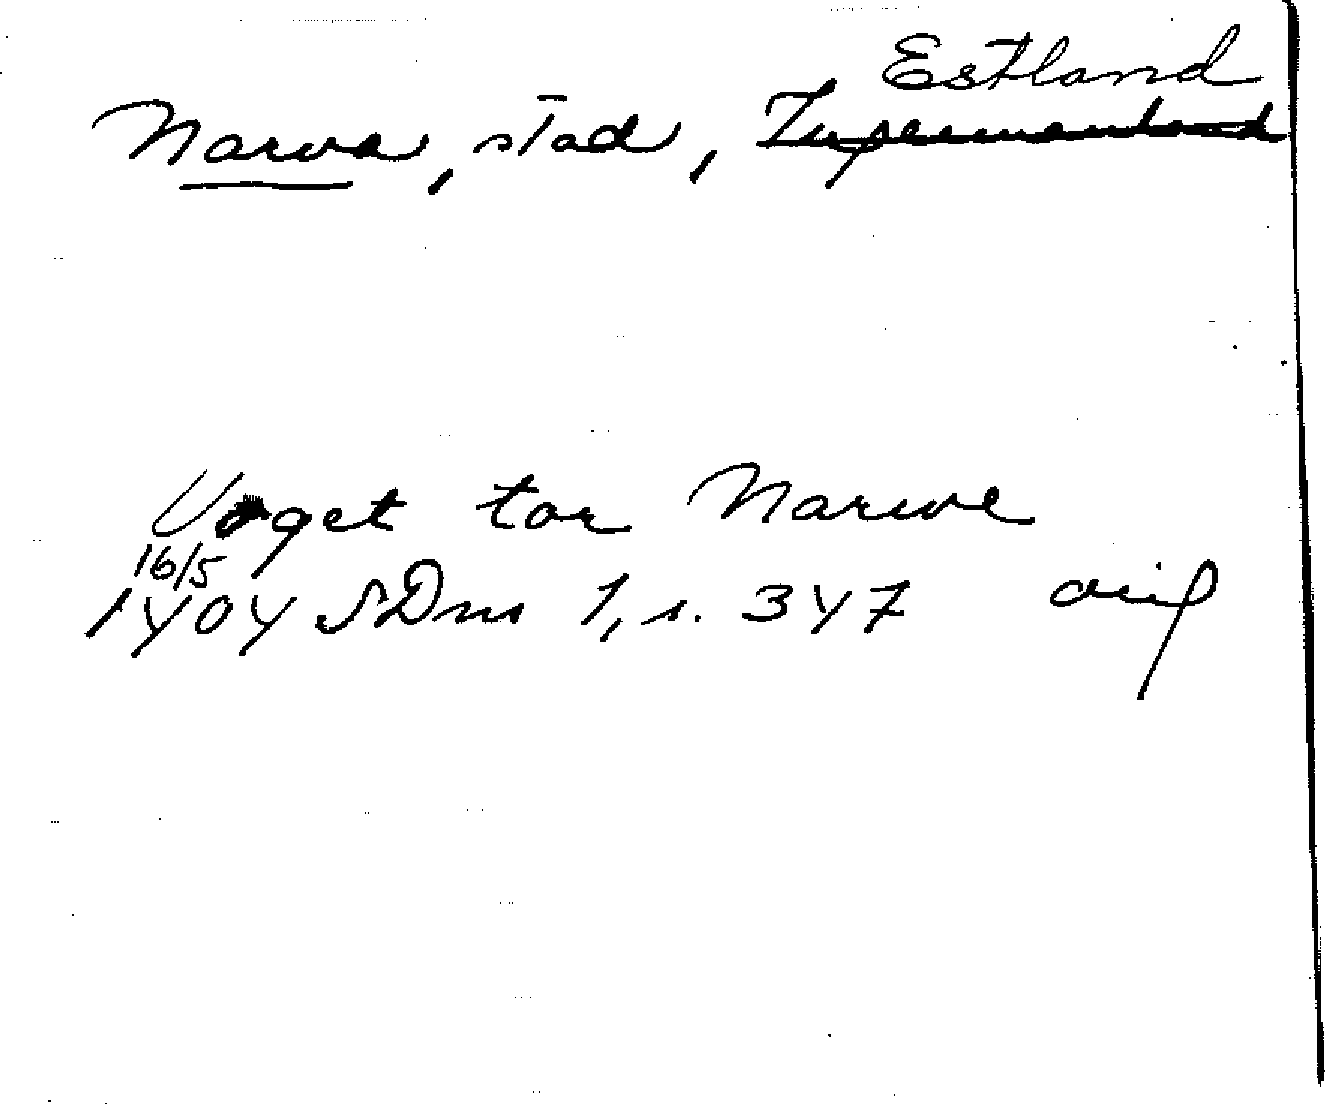 Estland
Narva, stad, Ingermanland
Voget tor Narwe
16/5
1404 SDns 1, s. 347 orig